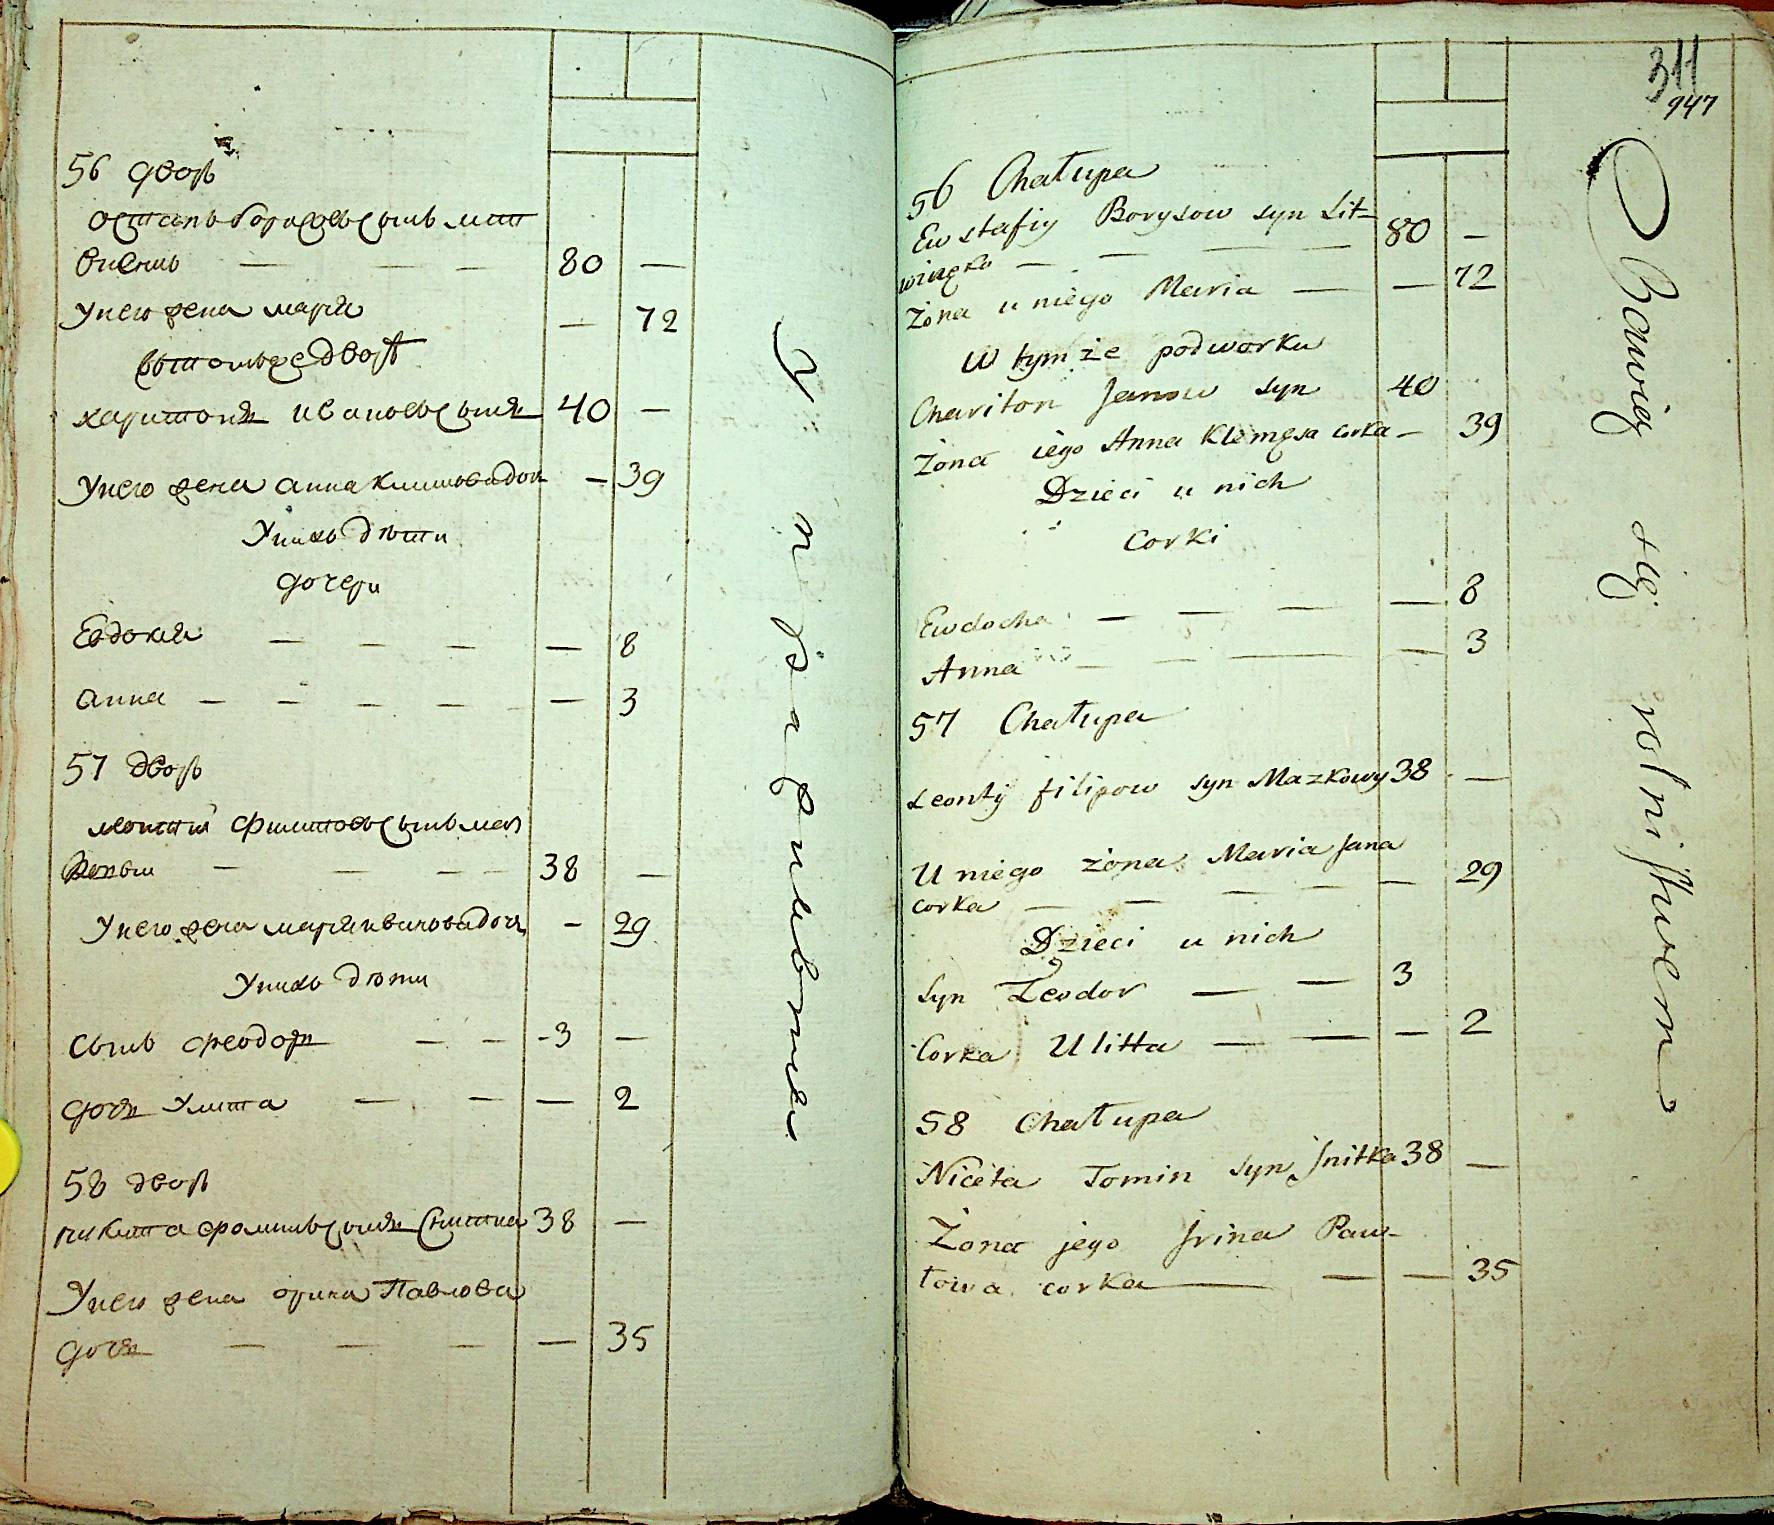 56 дворъ
Остапъ борисовъ сынъ лит
винъ — — — 80 —
У него жена мария — 72
въ томъ же дворѣ
харитонъ ивановъ сынъ 40 —
У него жена анна климова дочь — 39
У нихъ дѣти
дочери
Евдокия — — — — 8
анна — — — — — 3
57 дворъ
леонтий филиповъ сынъ маз
— — — — 38 —
У него жена мария иванова дочь — 29
У нихъ дѣти
сынъ феодоръ — — - 3 —
дочь Улита — — — 2
58 дворъ
никита фоминъ сынъ Снитка 38 —
У него жена орина Павлова
дочь — — — — 35
311
947
56 Chałupa
Ewstafiy Borysow syn Lit-
80 —
Żona u niego Maria — — 72
W tymże podworku
Chariton Janow syn 40
Żona iego Anna Klemęsa corka — 39
Dzieci u nich
Corki
Ewdocha — — — — 8
Anna — — — — 3
57 Chałupa
Leonty filipow syn Mazkowy 38 —
U niego żona Maria Jana
corka — — — — — 29
Dzieci u nich
Syn Teodor — — 3
Corka Ulitta — — — 2
58 Chałupa
Niceta Tomin syn Snitka 38 —
Żona jego Jrina Paw-
łowa corka — — — 35
Bawięcy się rolnistwem